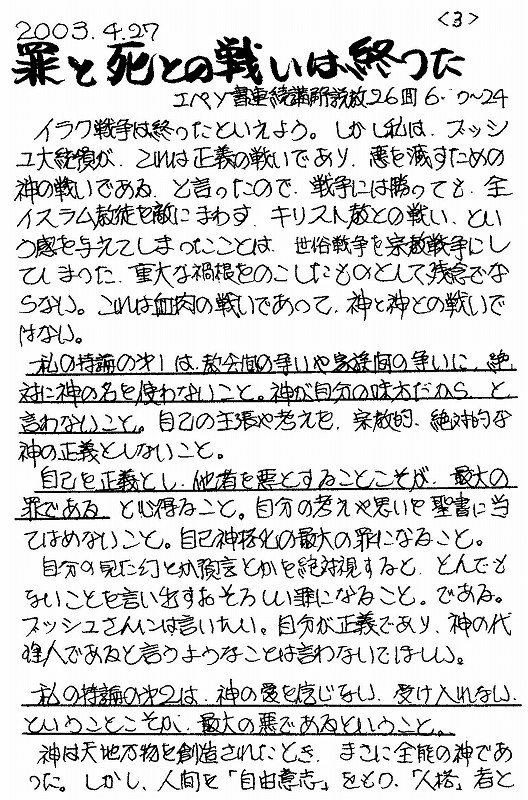 <3>
2003.4.27
罪と死との戦いは、終った
エペソ書連続講解説教26回 6:10〜24
イラク戦争は終ったといえよう。しかし私は、ブッシ
ュ大統領が、これは正義の戦いであり、悪を滅すための
神の戦いである、と言ったので、戦争には勝っても、全
イスラム教徒を敵にまわす、キリスト教との戦い、とい
う感を与えてしまったことは、世俗戦争を宗教戦争にし
てしまった、重大な禍根をのこしたものとして残念でな
らない。これは血肉の戦いであって、神と神との戦いで
はない。
私の持論の才1は、教会間の争いや家族間の争いに、絶
対に神の名を使わないこと。神が自分の味方だから、と
言わないこと。自己の主張や考えを、宗教的、絶対的な
神の正義としないこと。
自己を正義とし、他者を悪とすることこそが、最大の
罪である、と心得ること。自分の考えや思いを聖書に当
てはめないこと。自己神格化の最大の罪になること。
自分の見た幻とか預言とかを絶対視すると、とんでも
ないことを言い出すおそろしい罪になること。である。
ブッシュさんには言いたい。自分が正義であり、神の代
理人であると言うようなことは言わないでほしい。
私の持論の才2は、神の愛を信じない、受け入れない、
ということこそが、最大の悪であるということ。
神は天地万物を創造されたとき、まさに全能の神であ
った。しかし、人間を「自由意志」をもつ、「人格」者と